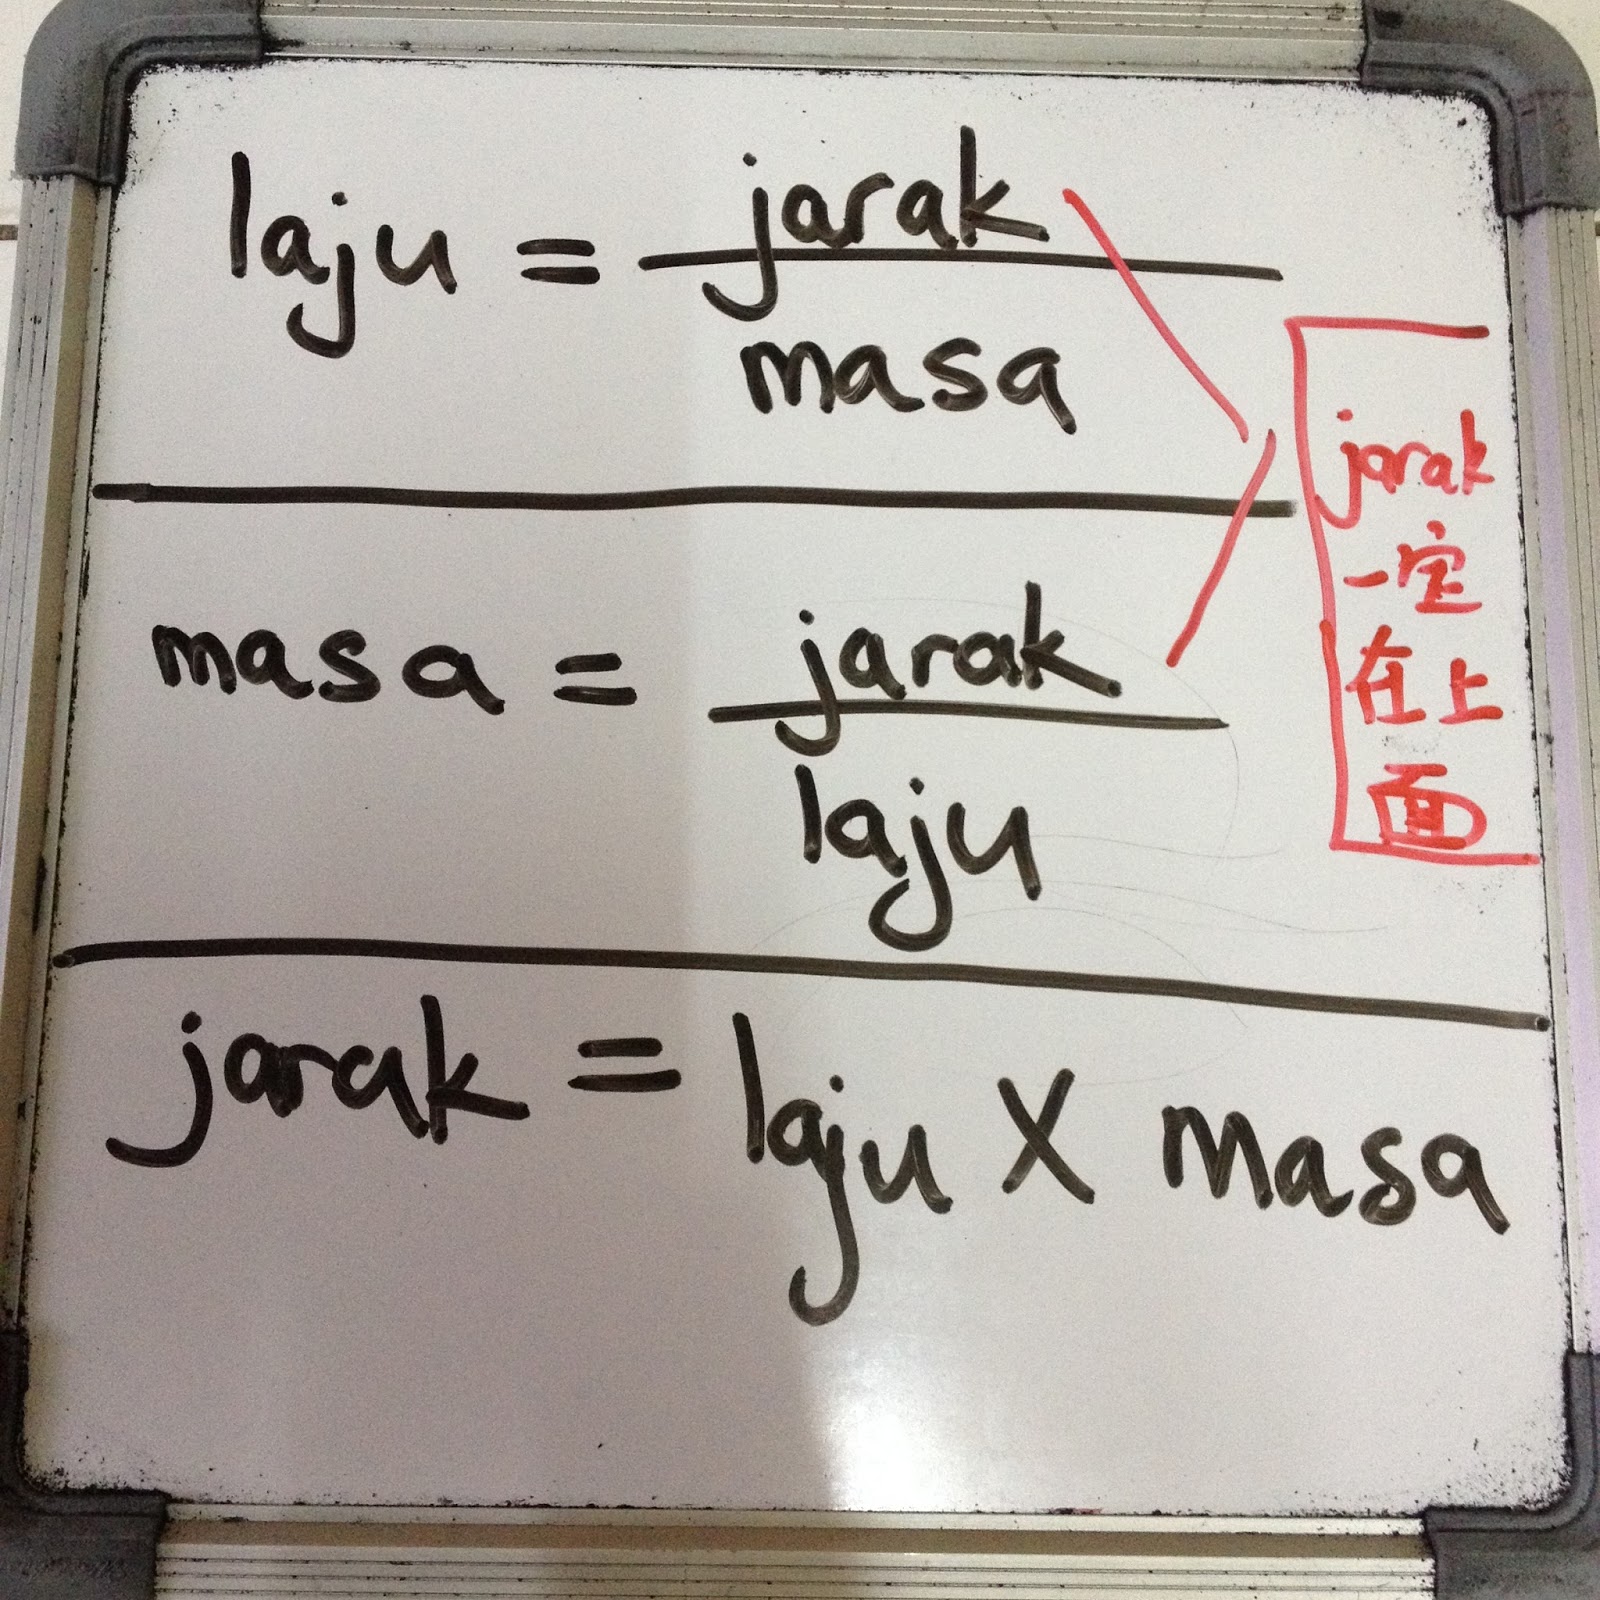 laju = jarak
masa
masa = jarak
laju
jarak = laju X masa
jarak
一定
在上
面